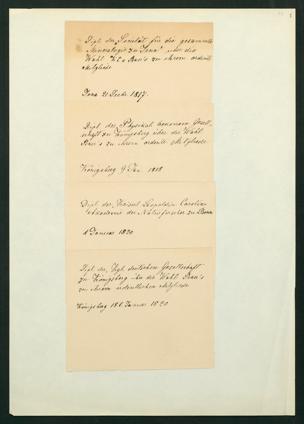 Dipl. der Societät für die gesammte
Mineralogie zu Jena über die
Wahl zu ihrem ordentl.
Mitgliede
Jena 21 Decbr. 1817.
Dipl. der Physikal. Gesell-
schaft zu Königsberg über die Wahl
zu ihrem ordentl. Mitgliede
Königsberg 9 Jan. 1818
Dipl. der Kaiserl. Leopoldin. Carolin.
Akademie der Naturforscher zu Bonn
Januar 1820
Dipl. der Kgl. deutschen Gesellschaft
zu Königsberg über die Wahl
zu ihrem ordentlichen Mitgliede
Königsberg 18 Januar 1820